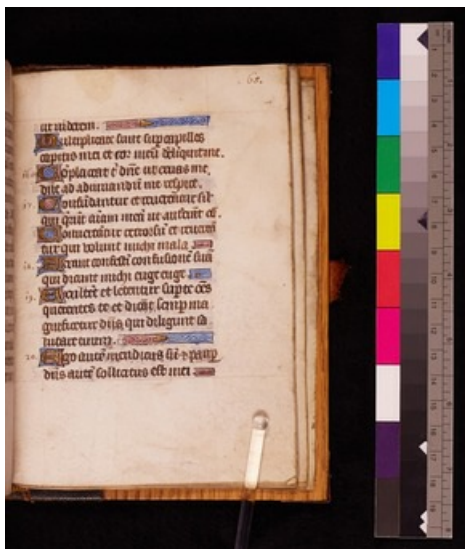 60.
ut viderem.
Multiplicate sunt sup capilles
capitis mei et cor meū dēliquit me.
Cōplaceat t̄ dn̄e ut eruas me
dn̄e ad adiuvandū me respice.
17. Confūdantur et reuereant̄ sil-
qui q̄rūt aīam meā ut auferāt eā.
Conuertant̄ retrorsū et reuerā
tur qui volunt michi mala
18. Ferāt confestī confusionē suā
qui dicunt michi euge euge.
19. Exultēt et letentur sup te oēs
querentes te et dicāt semp ma
gnificetur dn̄s qui diligunt sa
lutare tuum.
20. Ego autē mendicus sū et paup
dn̄s autē sollicitus est mei